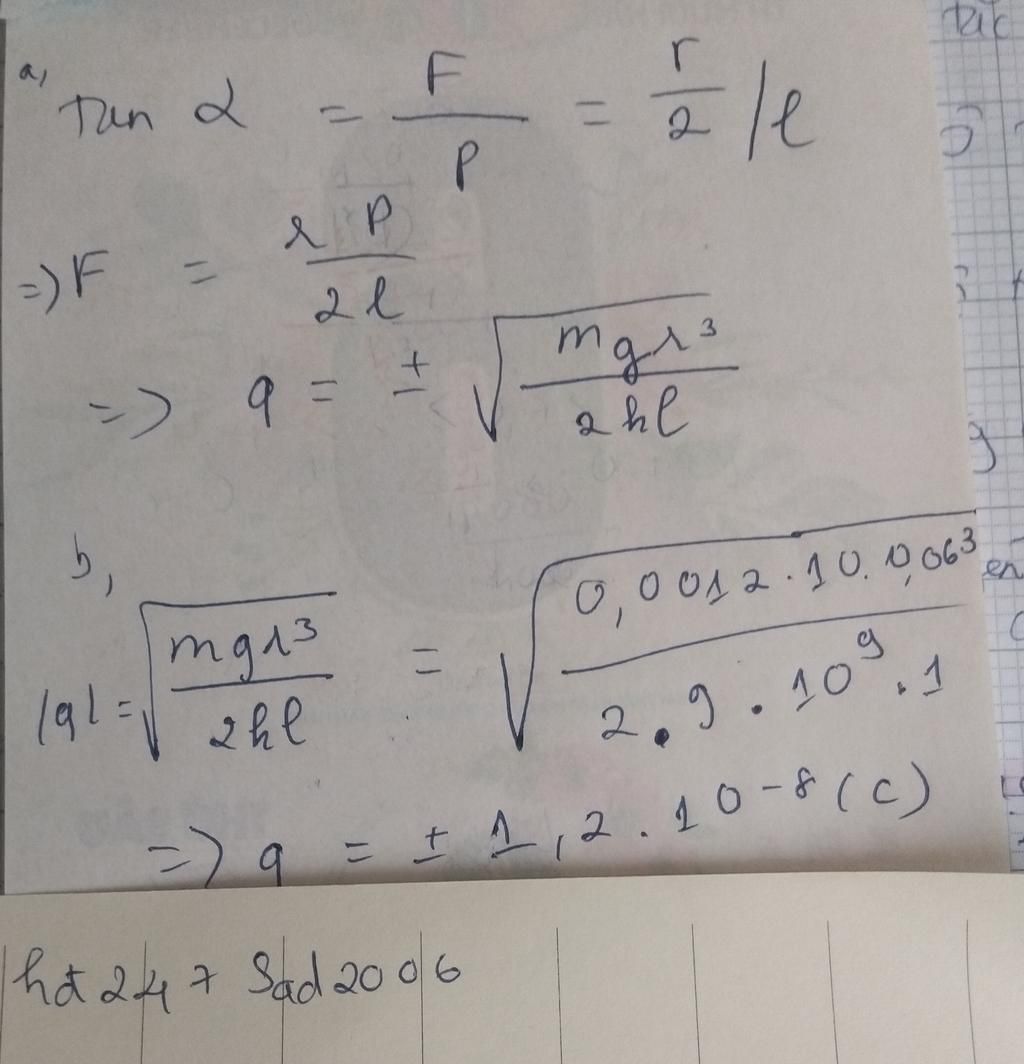 a, Tan α = F/P = r/2 / l
=> F = rP/2l
=> q = ± √(mgr³/2kl)
b, |q| = √(mgr³/2kl) = √(0,0012.10.0,06³/2.9.10⁹.1)
=> q = ± 1,2.10⁻⁸ (C)
hd247 Sad2006